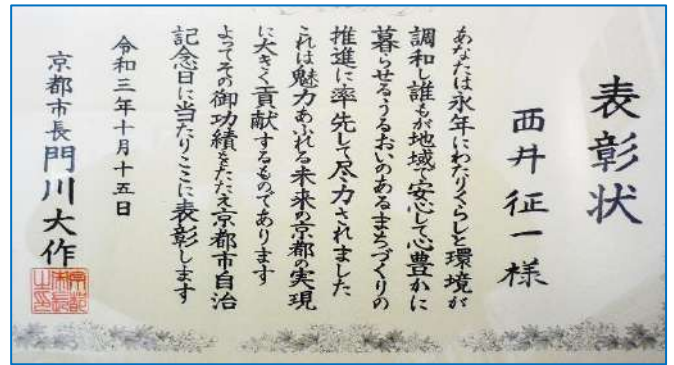 表彰状
西井征一様
あなたは永年にわたりくらしと環境が
調和し誰もが地域で安心して心豊かに
暮らせるうるおいのあるまちづくりの
推進に率先して尽力されました
これは魅力あふれる未来の京都の実現
に大きく貢献するものであります
よってその御功績をたたえ京都市自治
記念日に当たりここに表彰します
令和三年十月十五日
京都市長門川大作
京都市長之印